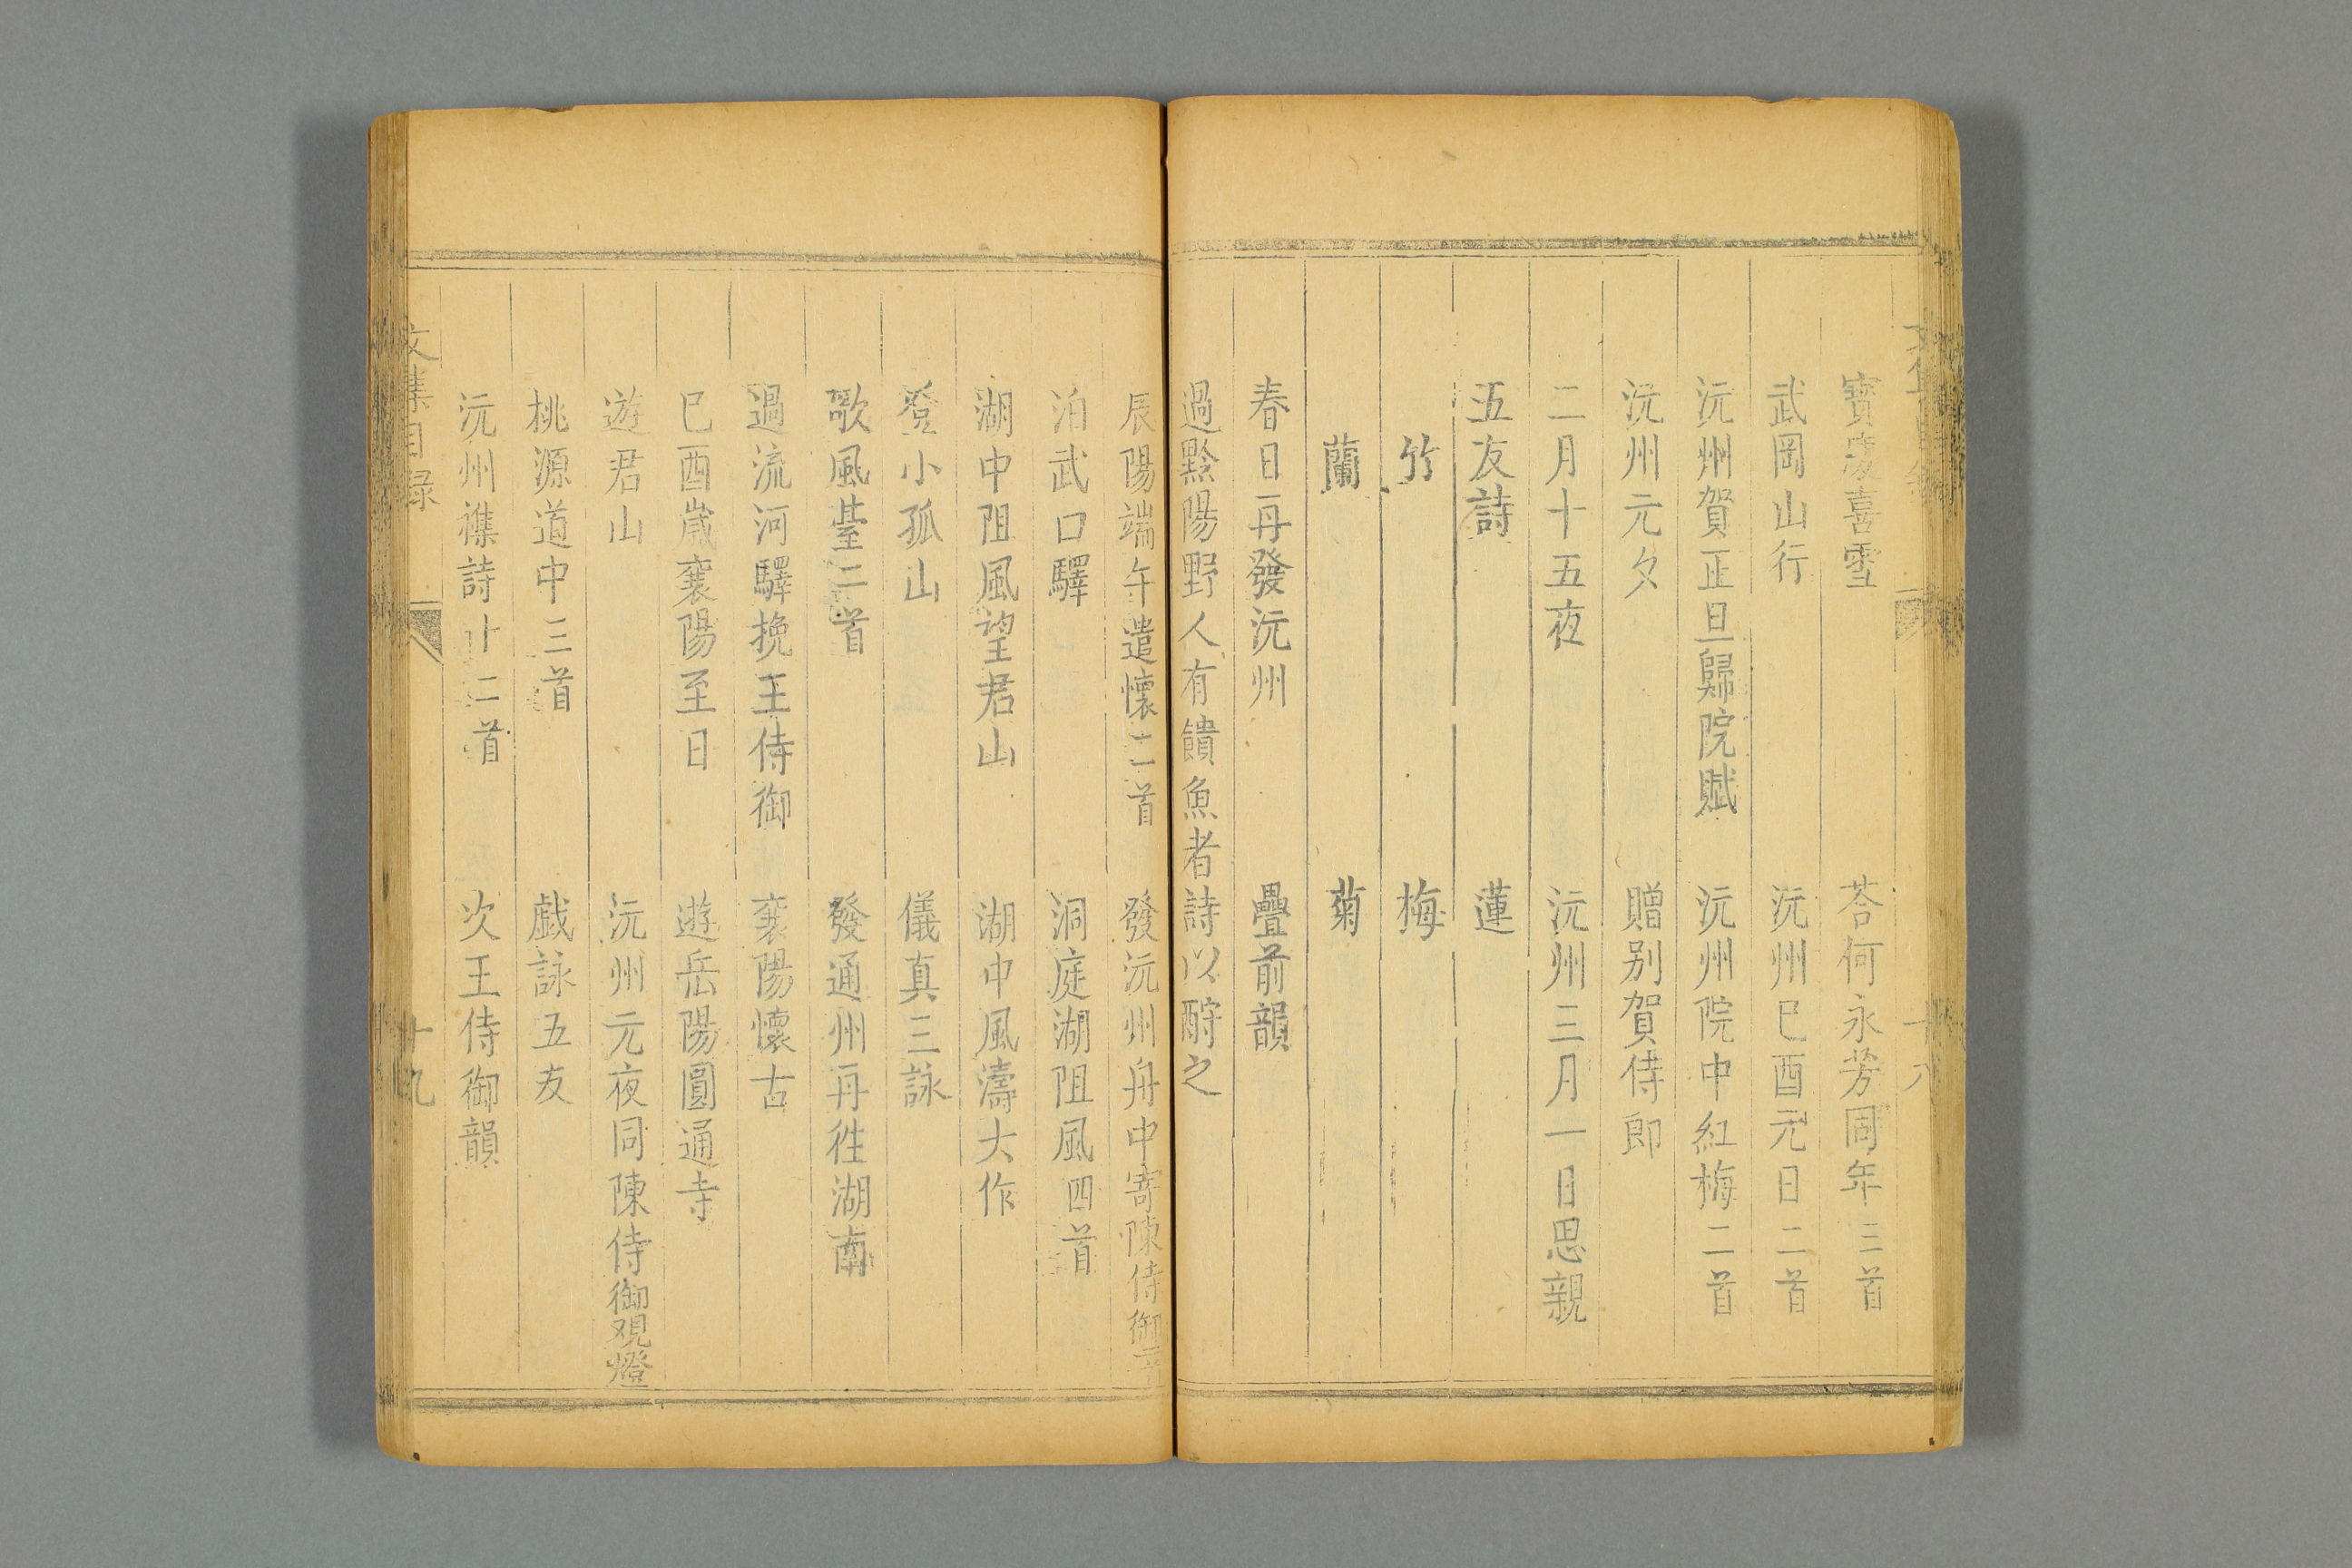 寳慶喜雪　荅何永芳同年三首
武岡山行　沅州巳酉元日二首
沅州賀正旦歸院賦　沅州院中紅梅二首
沅州元夕　贈别賀侍郎
二月十五夜　沅州三月一日思親
五友詩　蓮
竹　梅
蘭　菊
春日再發沅州　疊前韻
過黔陽野人有饋魚者詩以酧之
十八
辰陽端午遣懷二首　發沅州舟中寄陳侍御二首
泊武口驛　洞庭湖阻風四首
湖中阻風望君山　湖中風濤大作
登小孤山　儀真三詠
歌風臺二首　發通州再徃湖南
過流河驛挽王侍御　襄陽懷古
巳酉嵗襄陽至日　遊岳陽圓通寺
遊君山　沅州元夜同陳侍御觀燈
桃源道中三首　戯詠五友
沅州襍詩十二首　次王侍御韻
文集目録　十九